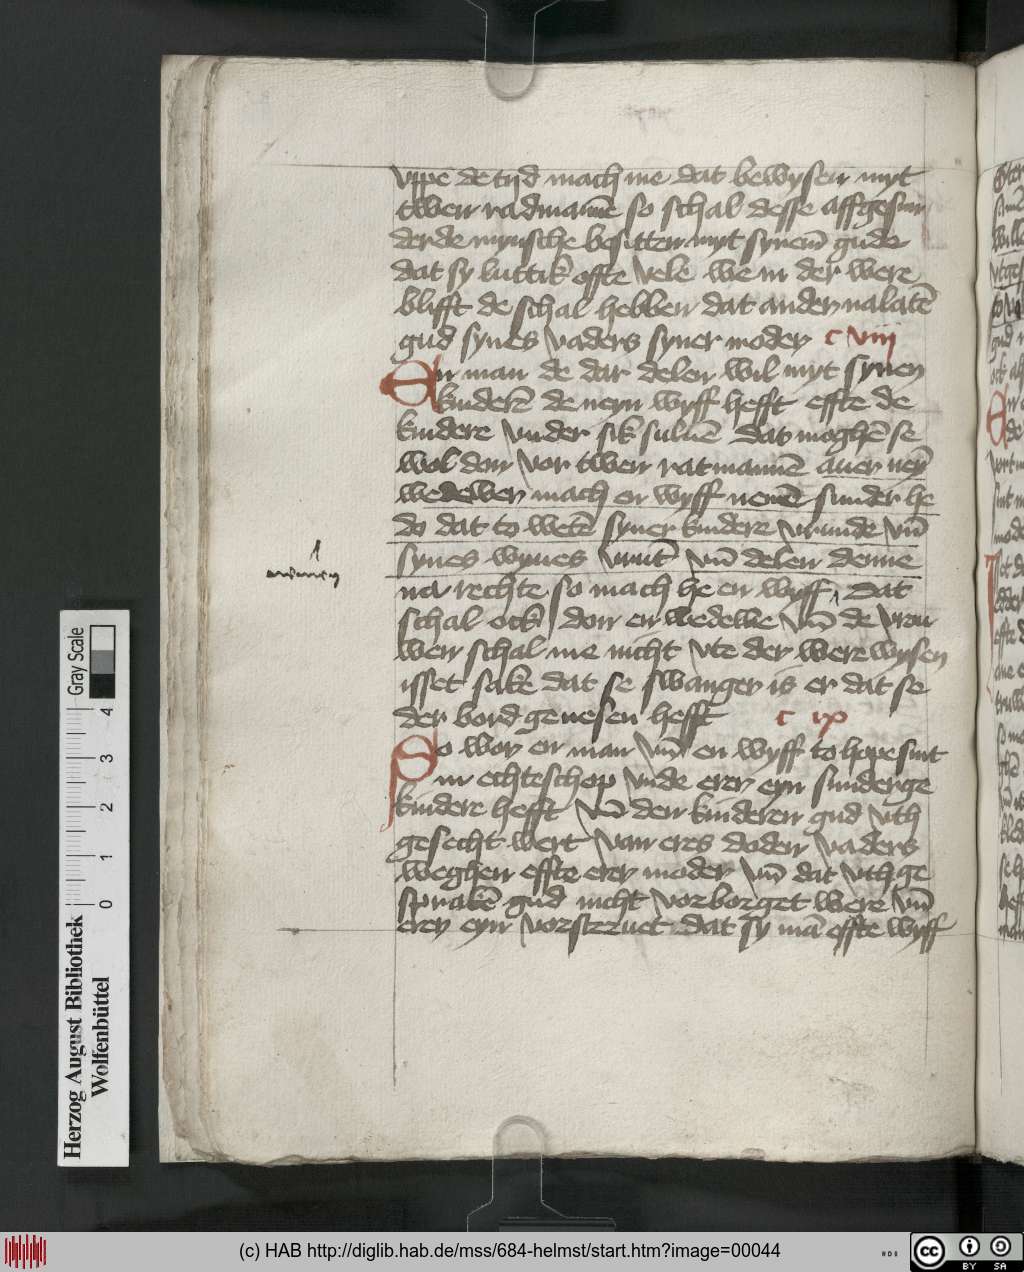 vppe de tijd mach me dat bewysen myt
twen radmanne so schal desse affgesun
derde mynsche besitten myt synem gude
dat sy luttik effte vele we in der were
blifft de schal hebben dat ander nalatē
gud synes vaders syner moder c viij
En man de dar delen wil myt synen
kinderē de neyn wyff hefft effte de
kindere vnder sik suluē dat moghē se
wol don vor twen ratmannē auer neÿ
wedewer mach en wyff nemē sunder he
do dat to wetē syner kindere vrunde vn̄
synes wyues vrūt vn̄ delen denne
na rechte so mach he en wyff dat
schal ock don en wedewe vn̄ de vrou
wen schal me nicht vte der were wysen
isset sake dat se swanger is er dat se
der bord genesen hefft c ix
So wor en man vn̄ en wyff to hope sint
in echteschop vnde erer eyn sunderge
kindere hefft vn̄ den kinderen gud vth
gesecht wert van eres doden vaders
weghen effte erer moder vn̄ dat vthge
sprakē gud nicht vorborget were vn̄
erer eyn vorsteruet dat sy mā effte wyff
Herzog August Bibliothek
Wolfenbüttel
Gray Scale
0 1 2 3 4
(c) HAB http://diglib.hab.de/mss/684-helmst/start.htm?image=00044
cc BY SA